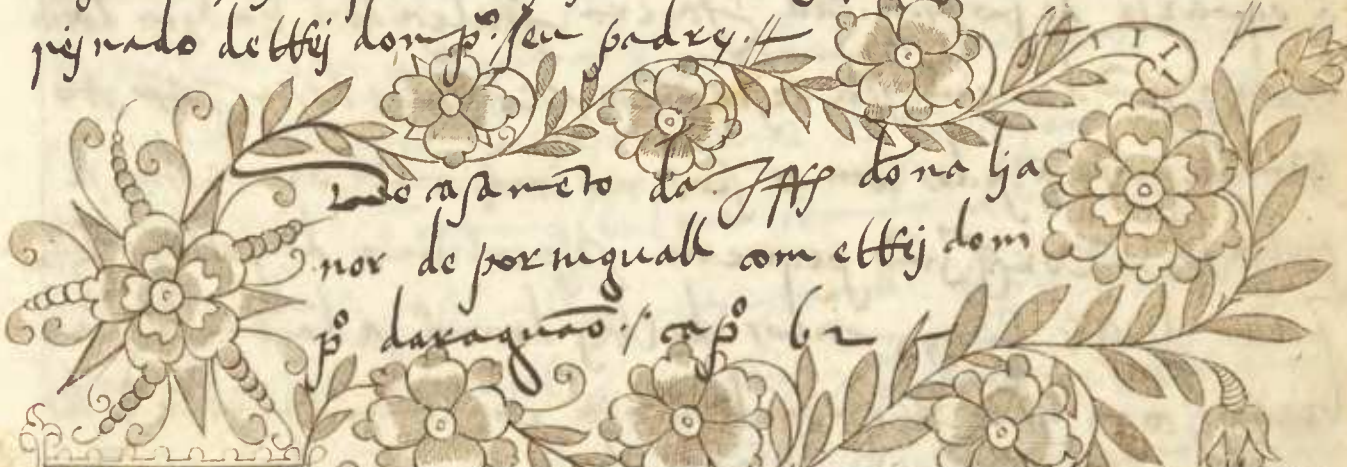 rejnado delRej dom p.º seu padre
Do casamẽto da Iffª dona lja
nor de portuguall com elRej dom
pº daraguão / capº 62